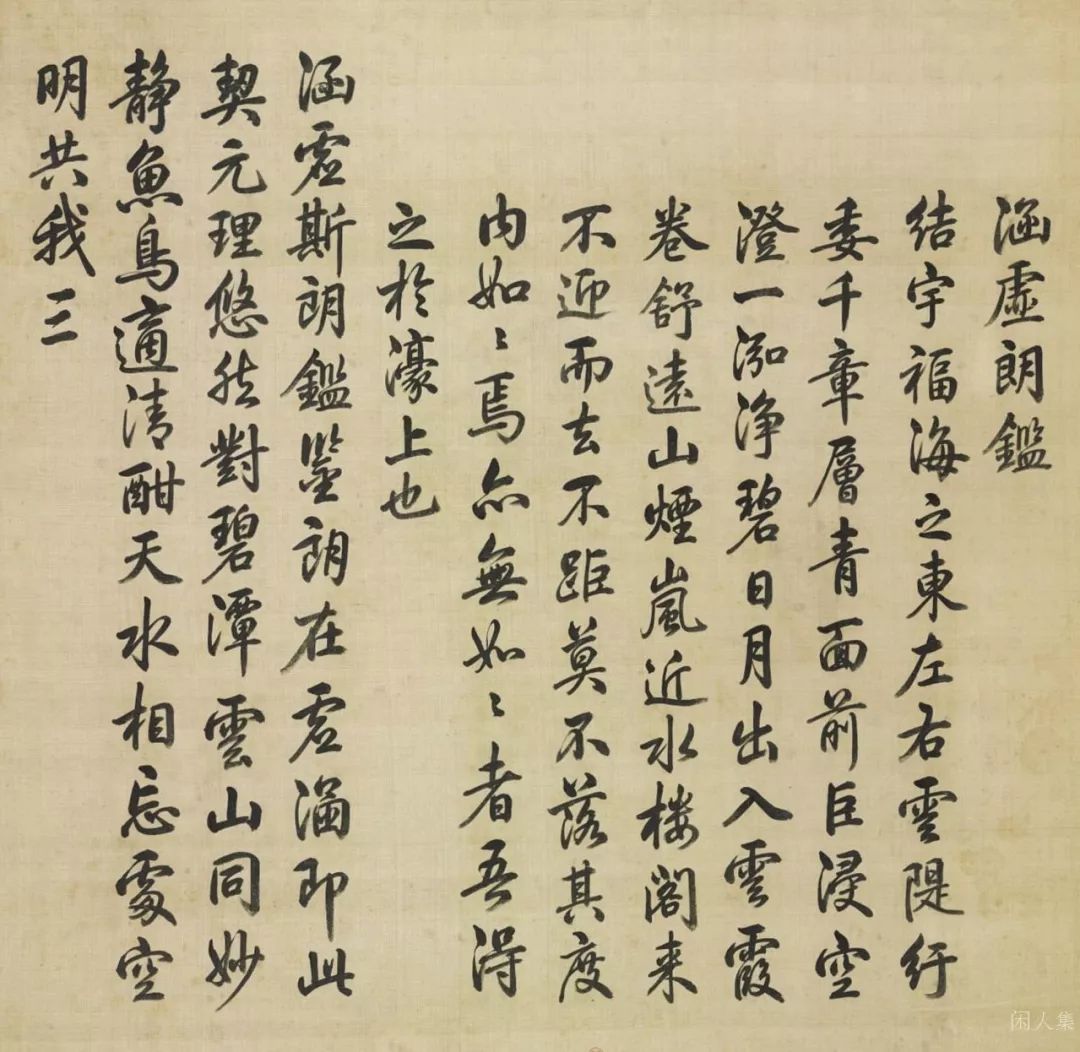 涵虛朗鑑
結宇福海之東左右雲隄紆
委千章層青面前巨浸空
澄一泓浄碧日月出入雲霞
卷舒遠山煙嵐近水楼閣来
不迎而去不距莫不落其度
内如〻焉亦無如〻者吾得
之於濠上也
涵虛斯朗鑑鑒朗在虛涵即此
契元理悠然對碧潭雲山同妙
静魚鳥適清酣天水相忘處空
明共我三
闲人集